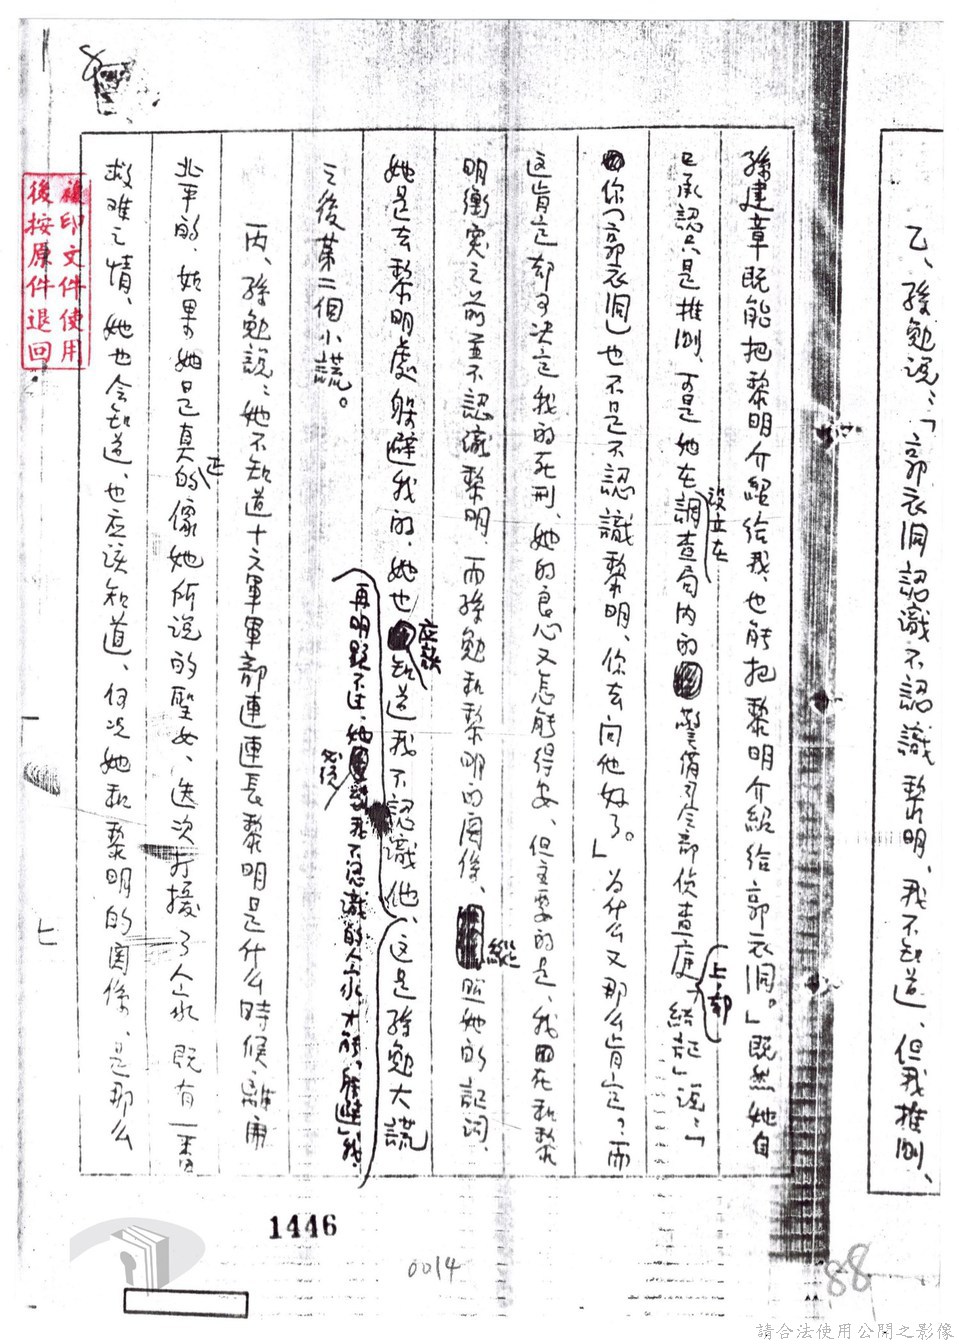 乙、孫勉說：「郭衣洞認識不認識黎明、我不知道、但我推測、
孫建章既能把黎明介紹給我、也能把黎明介紹給郭衣洞。」既然她自
已承認只是推測、而是她在調查局內的警備司令部偵查庭「結記」說：「
設立在
上、部
你（郭衣洞）也不是不認識黎明、你去问他好了。」为什么又那么肯定？而
这肯定却可决定我的死刑、她的良心又怎能得安、但主要的是、我因在和黎
明衝突之前並不認識黎明、而孫勉和黎明的関係、照她的記詞、
縱
她是去黎明處躲避我的、她也知道我不認識他、这是孫勉大謊
应該
再明顯不过、她我不認識的人家、才能「躲避」我、
必須
之後第二個小謊。
丙、孫勉說：她不知道十六軍軍部連連長黎明是什么時候離開
北平的、如果她是真的像她所說的聖女、迭次打接了人家、既有一番
正
救难之情、她也会知道、也应该知道、何况她和黎明的関係、是那么
複印文件使用
後按原件退回
8
一
七
1446
0014
88
請合法使用公開之影像